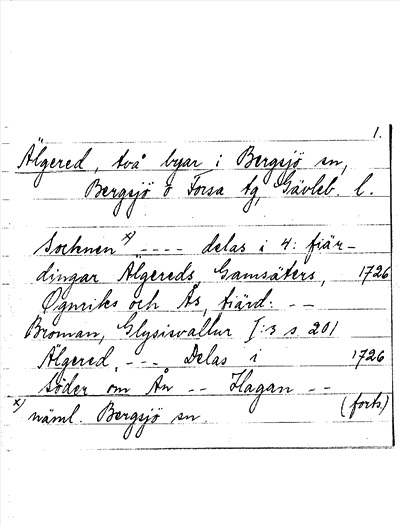 1.
Älgered, två byar i Bergsjö sn,
Bergsjö o Forsa tg, Gävleb. l.
Socknen x) ---- delas i 4: fiär-
dingar Älgereds, Gamsäters, 1726
Øgnriks och Ås, fiärd: --
Broman, Glysisvallur I:3 s 201
Älgered, --- Delas i 1726
söder om Ån -- Hagan --
x) näml. Bergsjö sn. (forts)